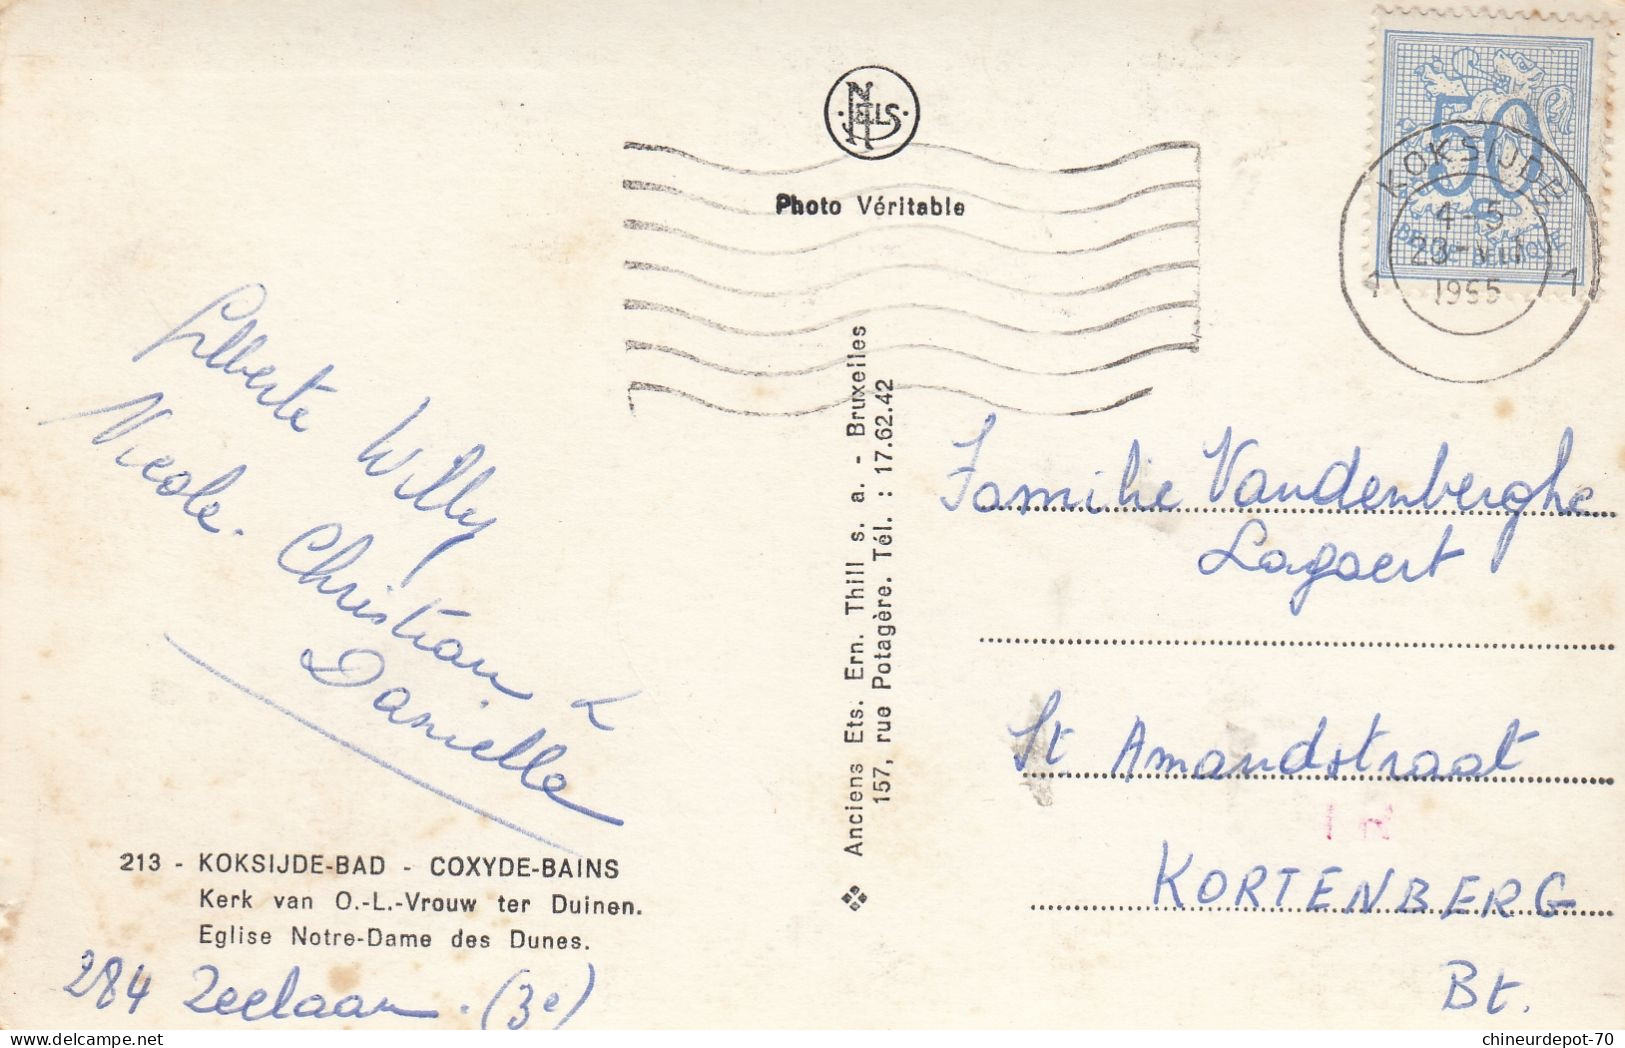 NELS
Photo Véritable
50
BELGIE BELGIQUE
KOKSIJDE
4-5
23-VII
1955
1 1
Gilberte Willy
Nicole. Christian &
Danielle
213 - KOKSIJDE-BAD - COXYDE-BAINS
Kerk van O.-L.-Vrouw ter Duinen.
Eglise Notre-Dame des Dunes.
284 Zeelaan. (3e)
Anciens Ets. Ern. Thill s. a. - Bruxelles
157, rue Potagère. Tél. : 17.62.42
Familie Vandenberghe
Lagaert
St Amandstraat
KORTENBERG
Bt.
chineurdepot-70